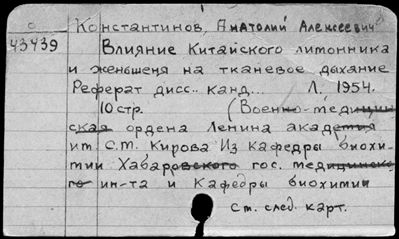 Константинов, Анатолий Алексеевич
43439
Влияние Китайского лимонника
и женьшеня на тканевое дыхание
Реферат дисс. канд... Л. 1954.
10 стр. (Военно-медицин
ская ордена Ленина академия
им. С.М. Кирова Из кафедры биохи-
мии Хабаровского гос. медицинско-
го ин-та и кафедры биохимии
См. след. карт.